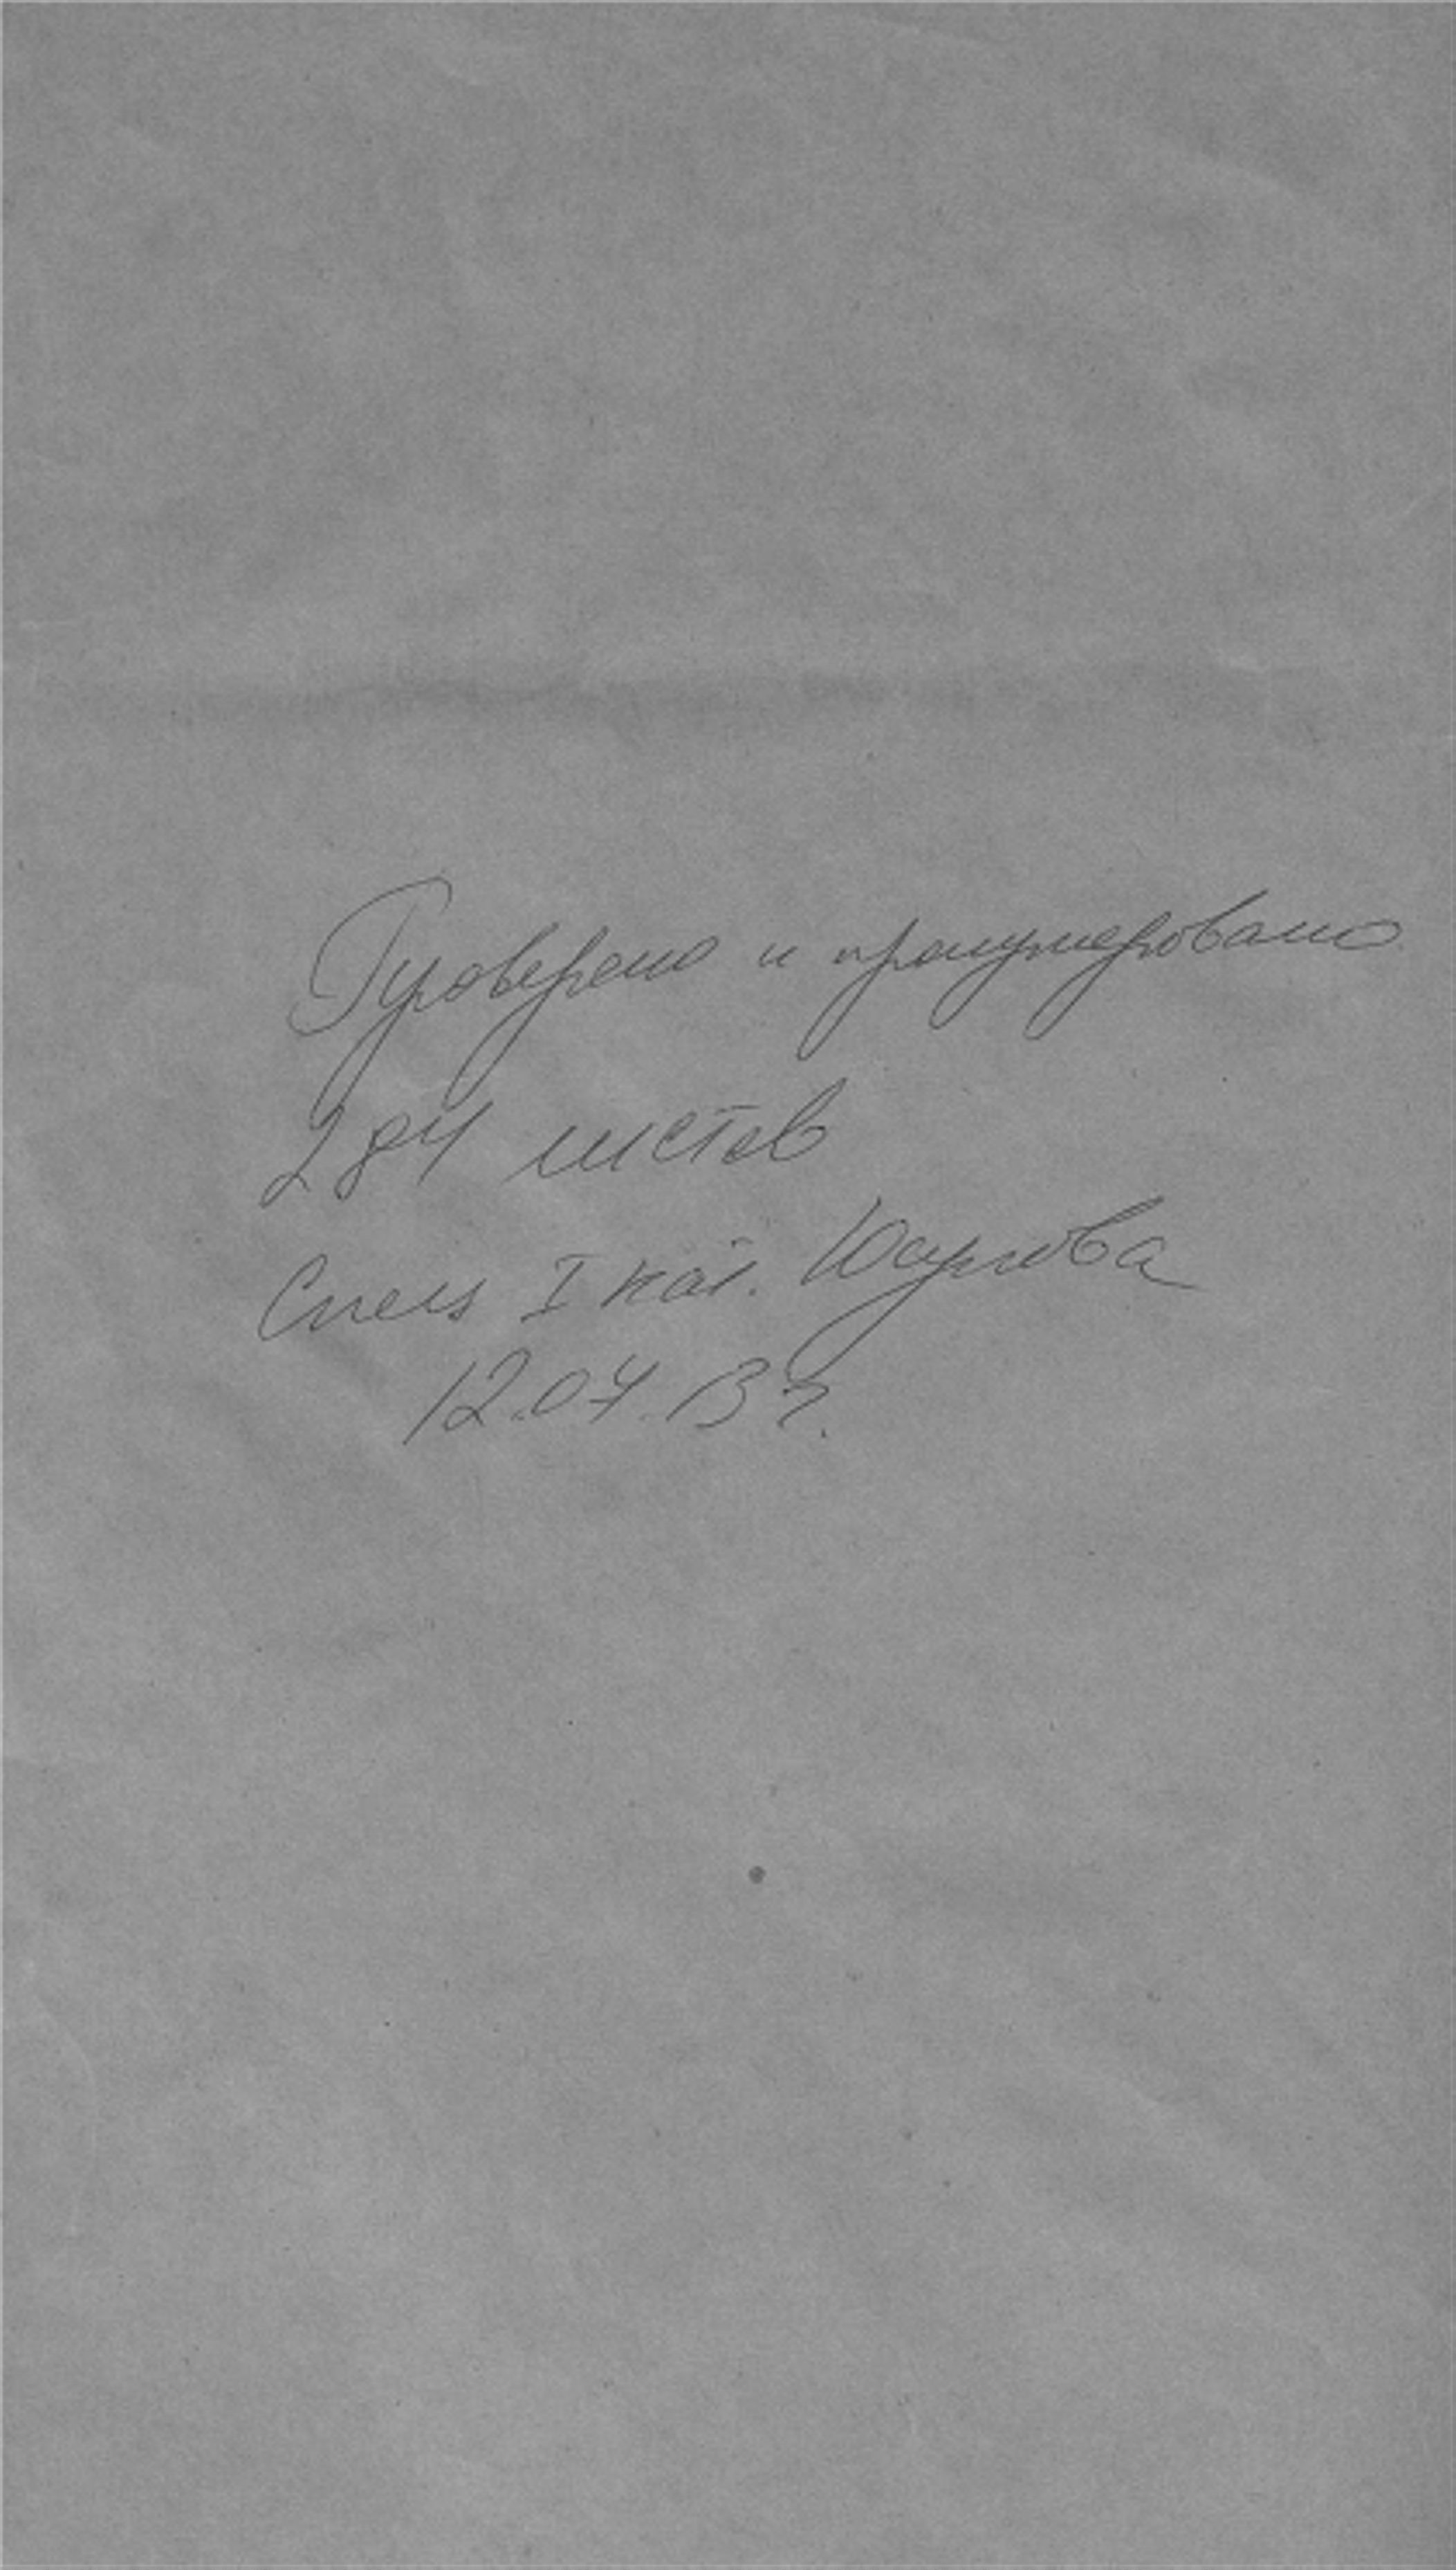 Проверено и пронумеровано
284 листов
Спец I кат.
12.04.13 г.